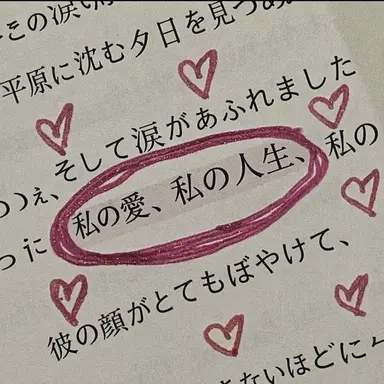 この涙
平原に沈む夕日を見つめ
そして涙があふれました
私の愛、私の人生、私の
った
彼の顔がとてもぼやけて、
ないほどに